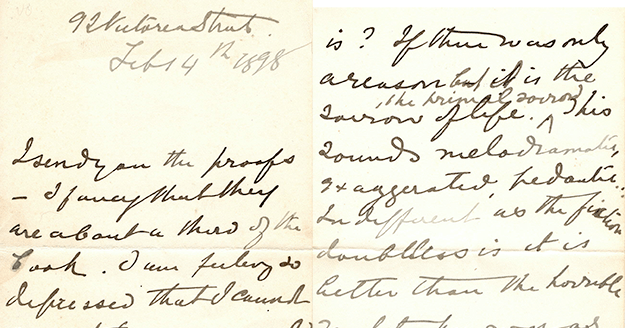 92 Victoria Street.
Feb 14th 1898
I send you the proofs
– I fancy that they
are about a third of the
book. I am feeling so
depressed that I cannot
is? If there was only
a reason but it is the
, the primal sorrow
sorrow of life. This
sounds melodramatic,
exaggerated, pedantic.
Indifferent as the fiction
doubtless is it is
better than the horrible